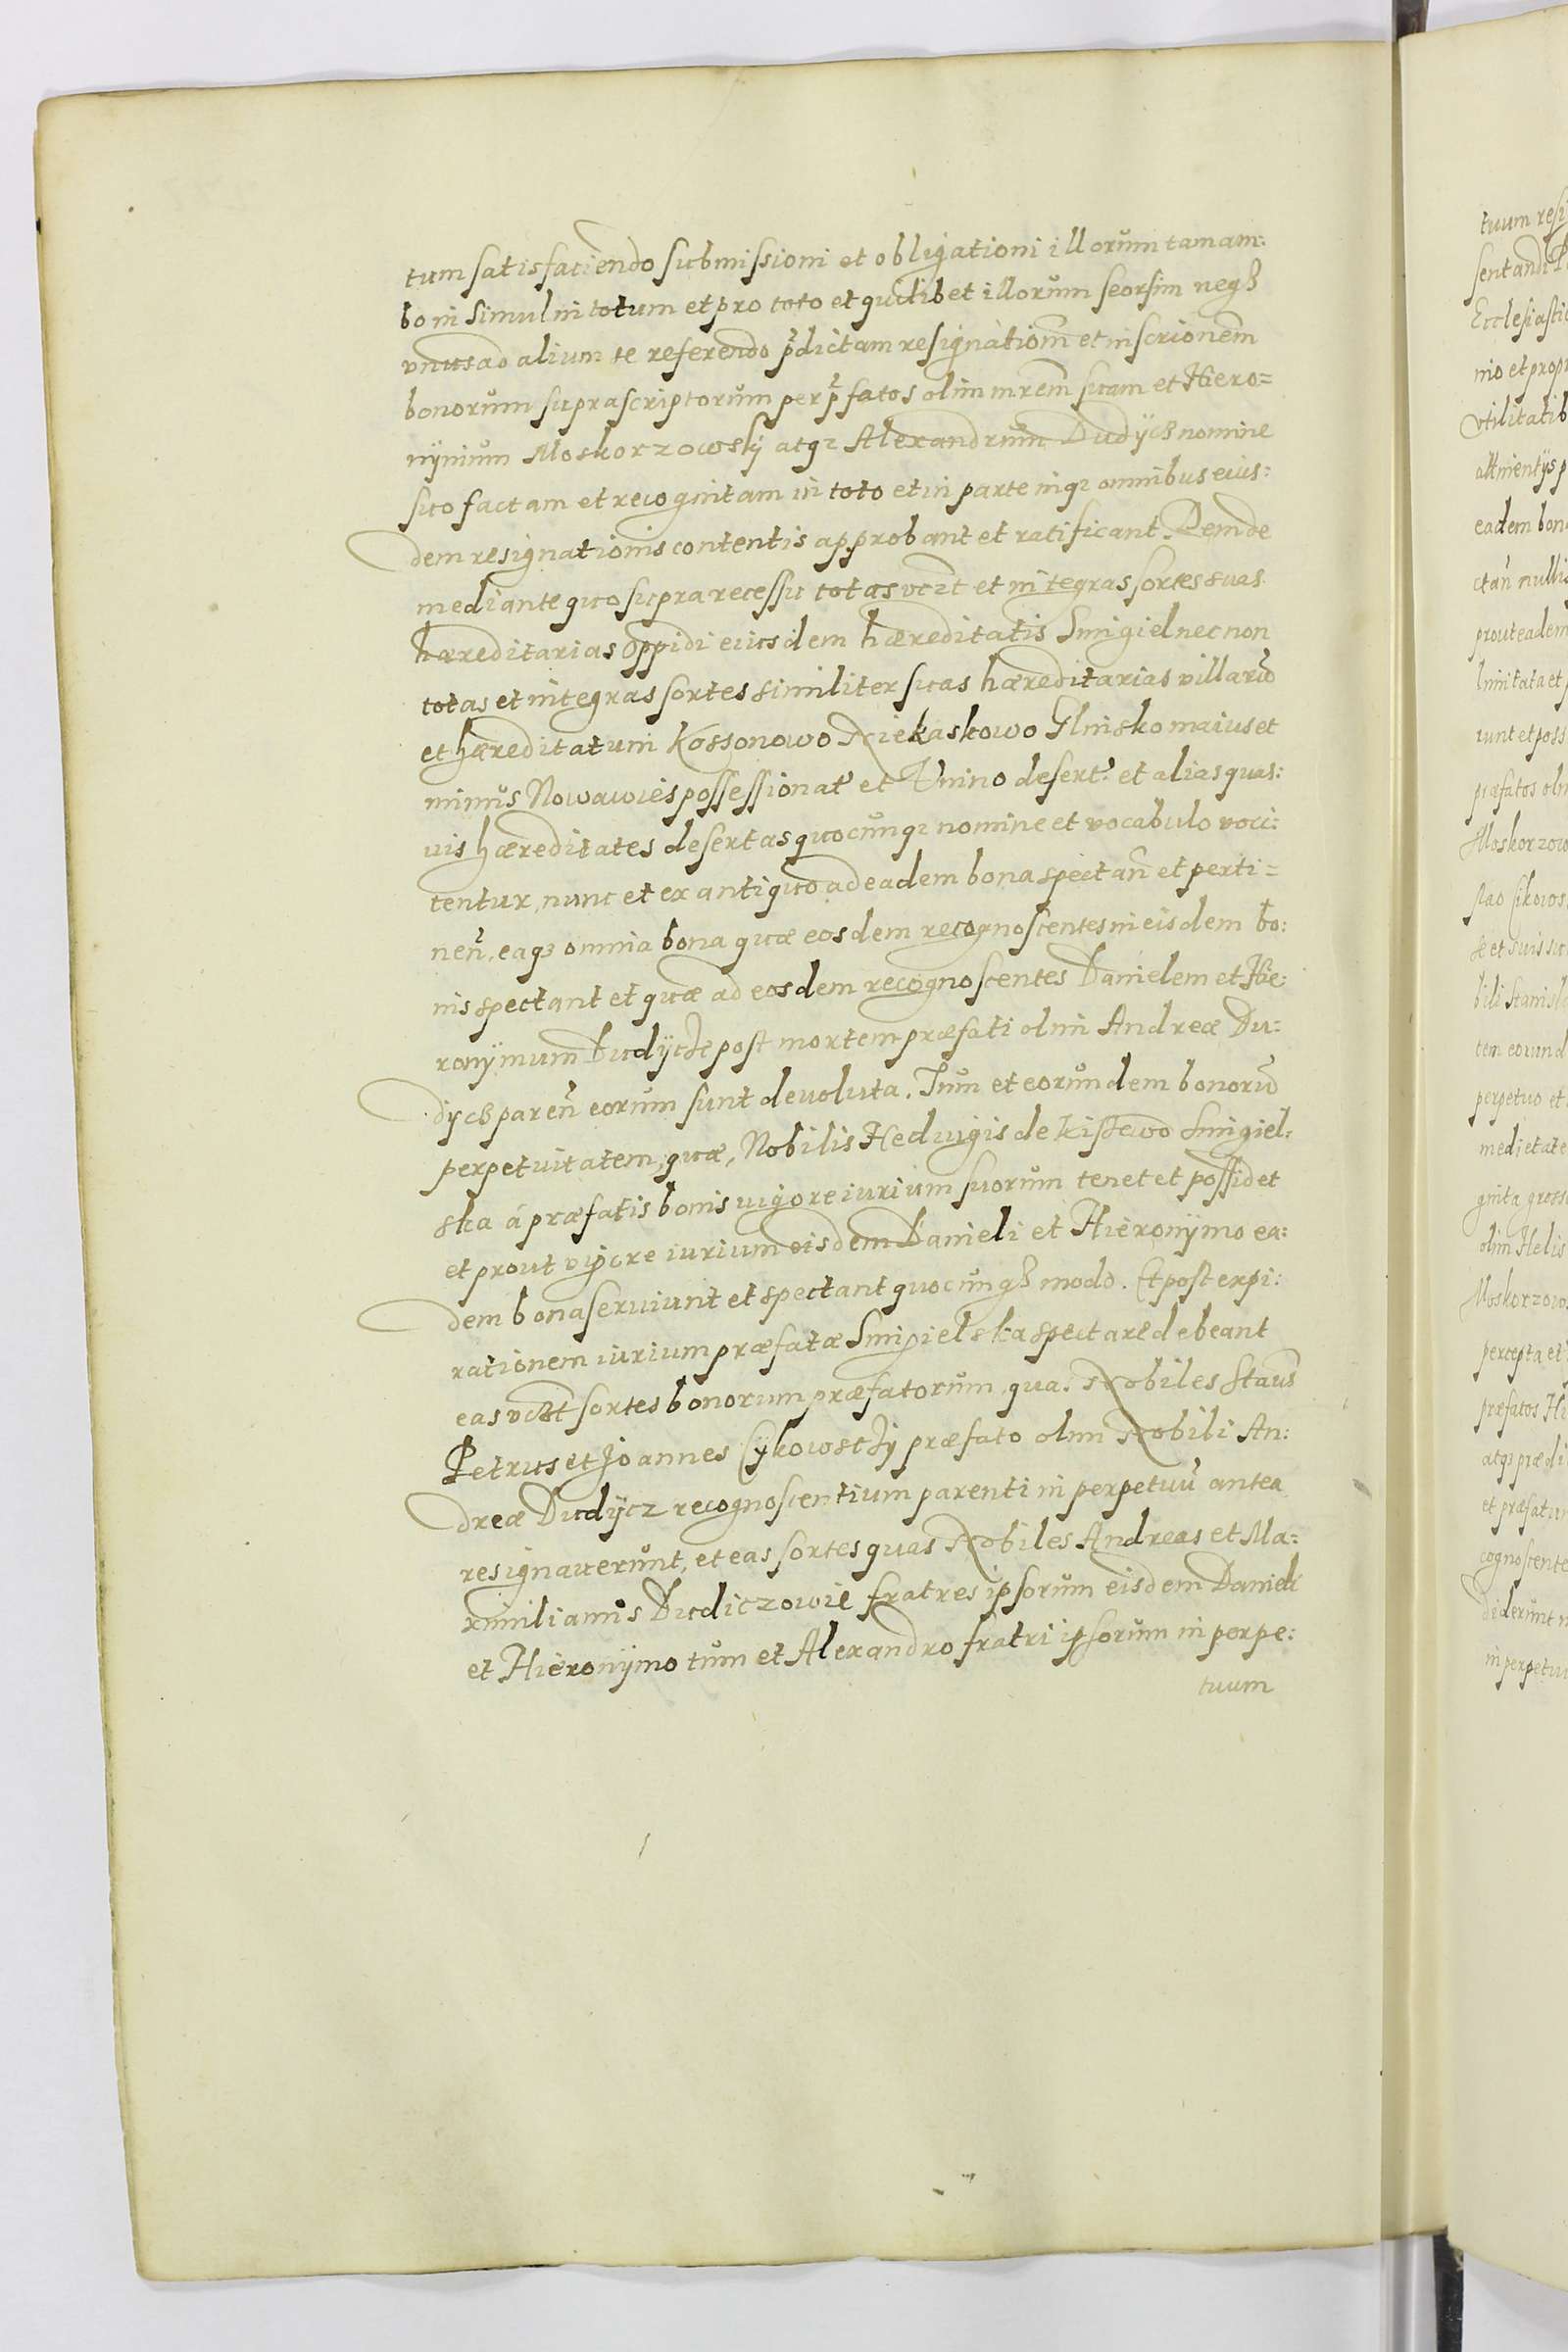 tum satisfaciendo submissioni et obligationi illorum tam am:
bo in simul in totum et pro toto et quilibet illorum seorsim neqȝ
vnus ad alium se referendo p̃dictam resignatiom̃ et inscrionem̃
bonorum suprascriptorum per p̃fatos olim in rem̃ suam et Hiero=
nÿmum Moskorzowskÿ atqȝ Alexandrum Dudÿcz nomine
suo factam et recognitam in toto et in parte inqȝ omnibus eius:
dem resignationis contentis approbant et ratificant. Demde
mediante quo supra recessu totas vt̃zt et integras sortes suas
hæreditarias oppidi eiusdem hæreditatis Smigiel nec non
totas et integras sortes similiter suas hæreditarias villarũ
et hæreditatum Kossonowo Niekaskowo Glinsko maius et
minus Nowawies possessionat̃ et Vnino desert̃ et alias quas:
uis hæreditates desertas quocunqȝ nomine et vocabulo voci:
tentur, nunc et ex antiquo ad eadem bona spectañ et perti=
neñ, eaqȝ omnia bona quæ eosdem recognoscentes in eisdem bo:
nis spectant et quæ ad eosdem recognoscentes Danielem et Hie:
ronÿmum Dudÿcze post mortem præfati olim Andreæ Du:
dycz pareñ eorum sunt deuoluta. Tum et eorundem bonorũ
perpetuitatem, quæ, Nobilis Heduigis de Kissewo Smigiel:
ska á præfatis bonis uigore iurium suorum tenet et possidet
et prout vigore iurium eisdem Danieli et Hieronÿmo ea:
dem bona seruiunt et spectant quocunqȝ modo. Et post expi:
rationem iurium præfatæ Smigielska spectare debeant
eas vt̃zt sortes bonorum præfatorum, qua. Nobiles Staus̃
Petrus et Joannes Cÿkowscÿ præfato olim Nobili An:
dreæ Dudÿcz recognoscentium parenti in perpetuũ antea
resignauerunt, et eas sortes quas Nobiles Andreas et Ma:
ximilianus Dudiczowie fratres ipsorum eisdem Danieli
et Hieronÿmo tum et Alexandro fratri ipsorum in perpe:
tuum